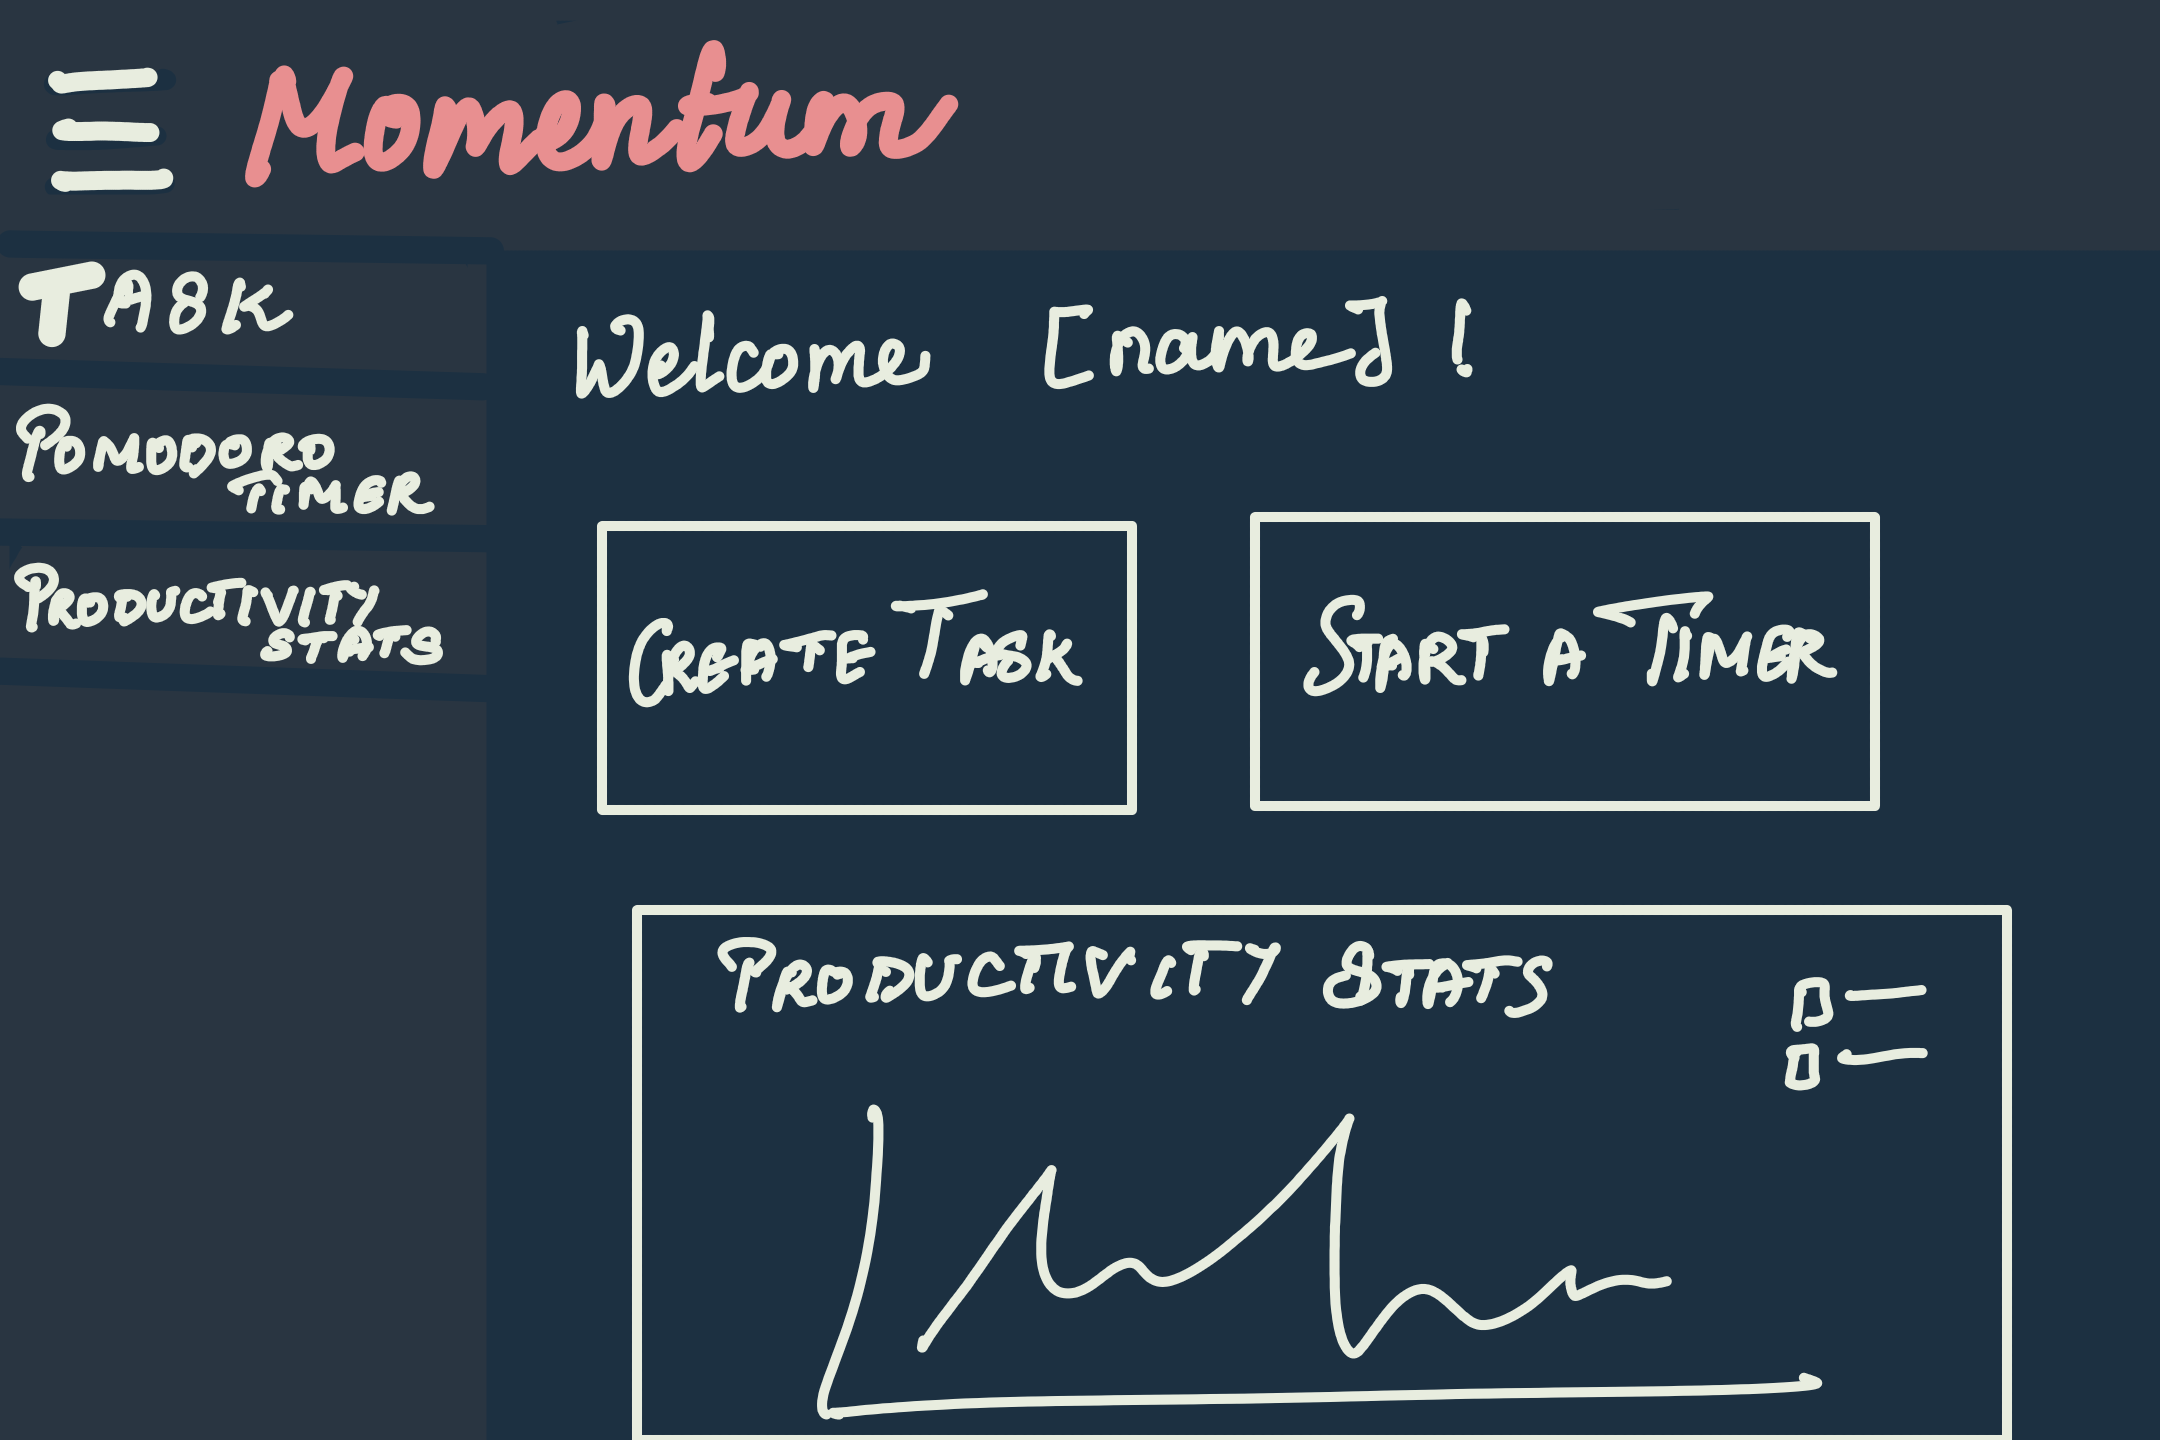 Momentum
TASK
POMODORO
TIMER
PRODUCTIVITY
STATS
Welcome [name] !
CREATE TASK
START A TIMER
PRODUCTIVITY STATS